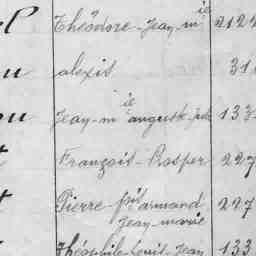 Théodore-Jean-m ie 212
alexis 31
Jean-m ie auguste 133
François-Prosper 227
Pierre-fois armand 227
Jean-marie
Théophile-Louis-Jean 133